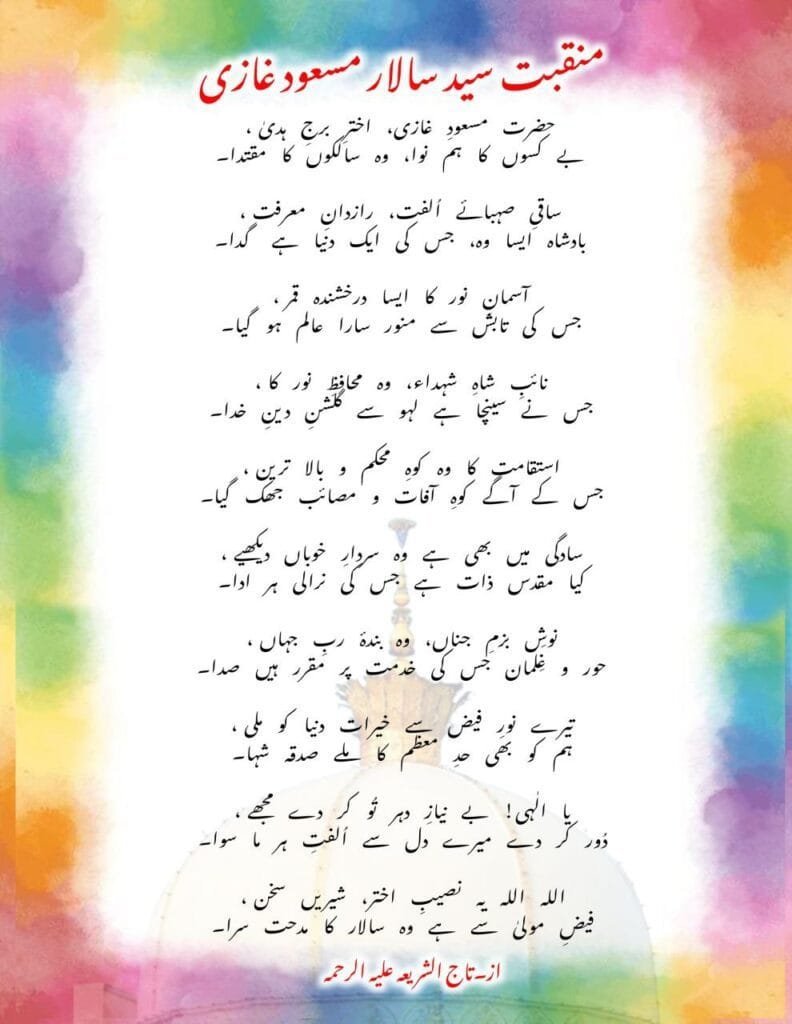 منقبت سید سالار مسعود غازی
حضرت مسعودِ غازی، اخترِ برجِ ہدیٰ،
بے کسوں کا ہم نوا، وہ سالکوں کا مقتدا۔
ساقیِ صہبائے اُلفت، رازدانِ معرفت،
بادشاہ ایسا وہ، جس کی ایک دنیا ہے گدا۔
آسمانِ نور کا ایسا درخشندہ قمر،
جس کی تابش سے منور سارا عالم ہو گیا۔
نائبِ شاہِ شہداء، وہ محافظِ نور کا،
جس نے سینچا ہے لہو سے گلشنِ دینِ خدا۔
استقامت کا وہ کوہِ محکم و بالا ترین،
جس کے آگے کوہِ آفات و مصائب جھک گیا۔
سادگی میں بھی ہے وہ سردارِ خوباں دیکھیے،
کیا مقدس ذات ہے جس کی نرالی ہر ادا۔
نوشِ بزمِ جناں، وہ بندۂ ربِ جہاں،
حور و غِلمان جس کی خدمت پر مقرر ہیں صدا۔
تیرے نورِ فیض سے خیرات دنیا کو ملی،
ہم کو بھی حدِ معظم کا ملے صدقہ شہا۔
یا الٰہی! بے نیازِ دہر تُو کر دے مجھے،
دُور کر دے میرے دل سے اُلفتِ ہر ما سوا۔
اللہ اللہ یہ نصیبِ اختر، شیریں سخن،
فیضِ مولیٰ سے ہے وہ سالار کا مدحت سرا۔
از۔تاج الشریعہ علیہ الرحمہ